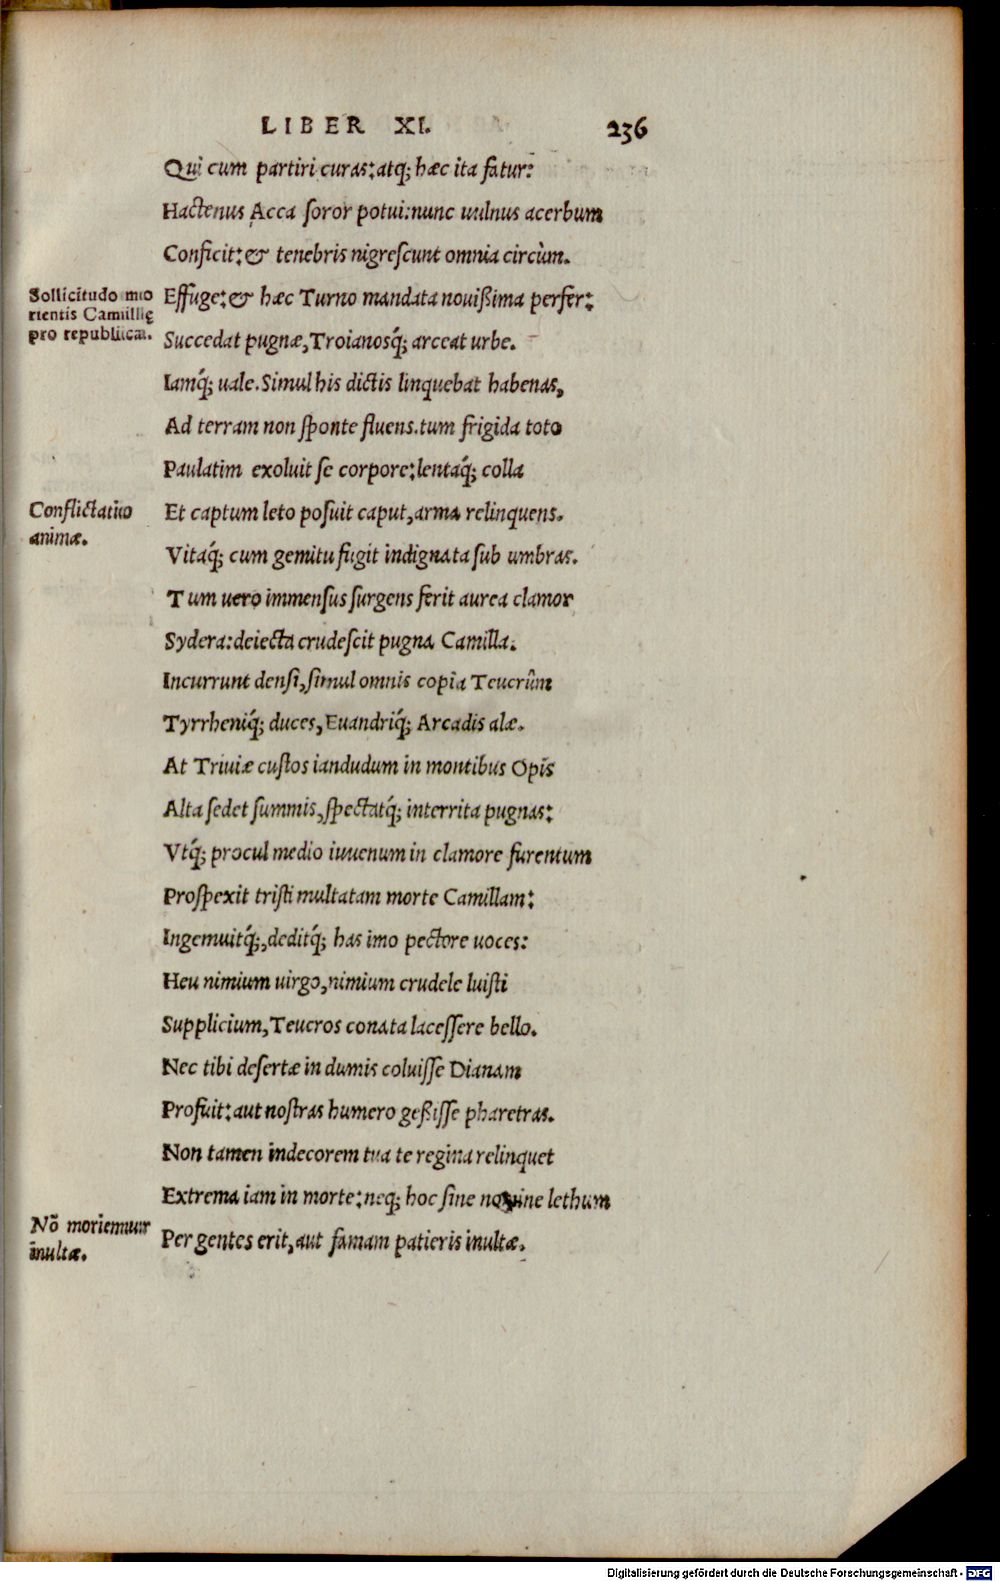 LIBER XI. 236
Qui cum partiri curas: atq; hæc ita fatur:
Hactenus Acca soror potui: nunc uulnus acerbum
Conficit: & tenebris nigrescunt omnia circùm.
Sollicitudo mo
rientis Camillę
pro republica.
Effuge: & hæc Turno mandata nouißima perfer:
Succedat pugnæ, Troianosq́; arceat urbe.
Iamq́; uale. Simul his dictis linquebat habenas,
Ad terram non sponte fluens. tum frigida toto
Paulatim exoluit se corpore: lentaq́; colla
Conflictatio
animæ.
Et captum leto posuit caput, arma relinquens.
Vitaq́; cum gemitu fugit indignata sub umbras.
Tum uero immensus surgens ferit aurea clamor
Sydera: deiecta crudescit pugna Camilla.
Incurrunt densi, simul omnis copia Teucrûm
Tyrrheniq́; duces, Euandriq́; Arcadis alæ.
At Triuiæ custos iandudum in montibus Opis
Alta sedet summis, spectatq́; interrita pugnas:
Vtq́; procul medio iuuenum in clamore furentum
Prospexit tristi multatam morte Camillam:
Ingemuitq́;, deditq́; has imo pectore uoces:
Heu nimium uirgo, nimium crudele luisti
Supplicium, Teucros conata lacessere bello.
Nec tibi desertæ in dumis coluisse Dianam
Profuit: aut nostras humero geßisse pharetras.
Non tamen indecorem tua te regina relinquet
Extrema iam in morte: neq; hoc sine nomine lethum
Nō moriemur
inultæ.
Per gentes erit, aut famam patieris inultæ.
Digitalisierung gefördert durch die Deutsche Forschungsgemeinschaft - DFG